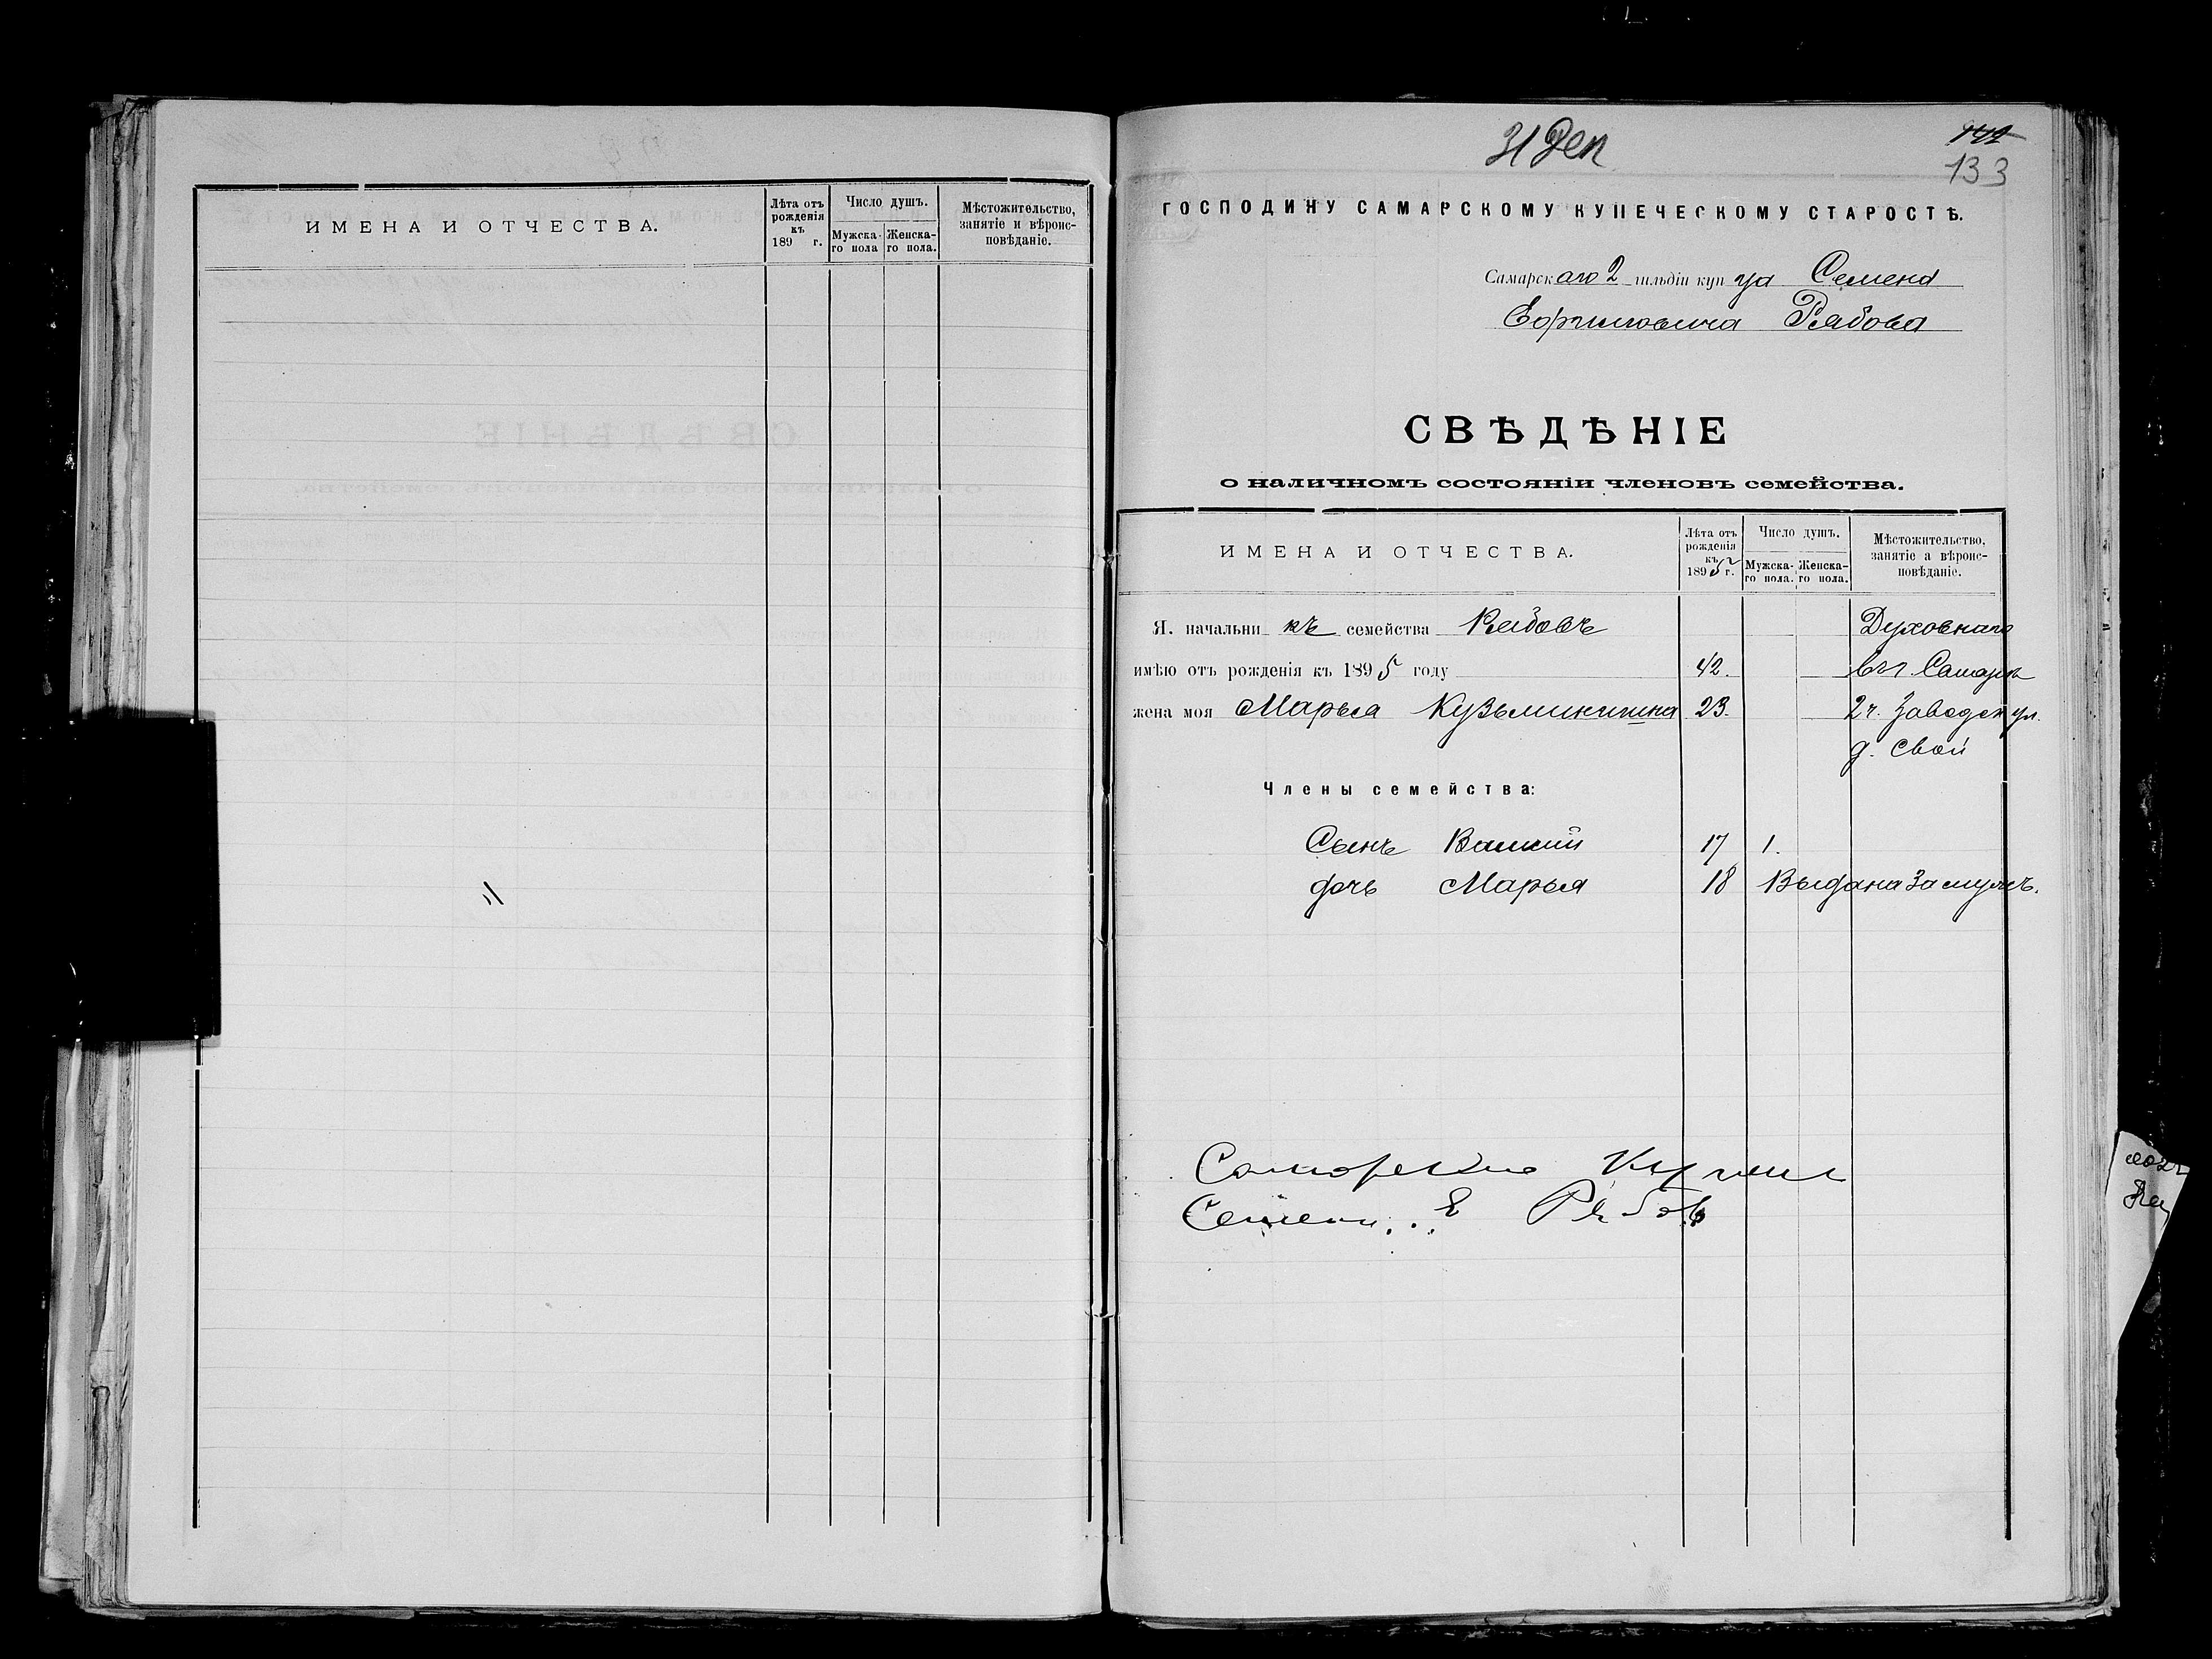 ИМЕНА И ОТЧЕСТВА.
Лѣта отъ рожденія къ 189 г.
Число душъ.
Мужска-го пола
Женска-го пола.
Мѣстожительство, занятіе и вѣроис-повѣданіе.
31 Дек
142
133
ГОСПОДИНУ САМАРСКОМУ КУПЕЧЕСКОМУ СТАРОСТѢ.
Самарскаго 2 гильдіи купца Семена
Рябова
СВѢДѢНІЕ
о наличномъ состояніи членовъ семейства.
ИМЕНА И ОТЧЕСТВА.
Лѣта отъ рожденія къ 1895 г.
Число душъ.
Мужска-го пола.
Женска-го пола.
Мѣстожительство, занятіе а вѣроис-повѣданіе.
Я. начальникъ семейства Рябовъ
имѣю отъ рожденія къ 1895 году 42. Самарѣ
жена моя Марья 23. 2 ч. Заводск ул.
д. свой
Члены семейства:
Сынъ 17 1.
дочь Марья 18 Выдана замужъ.
Семен Е Рябов